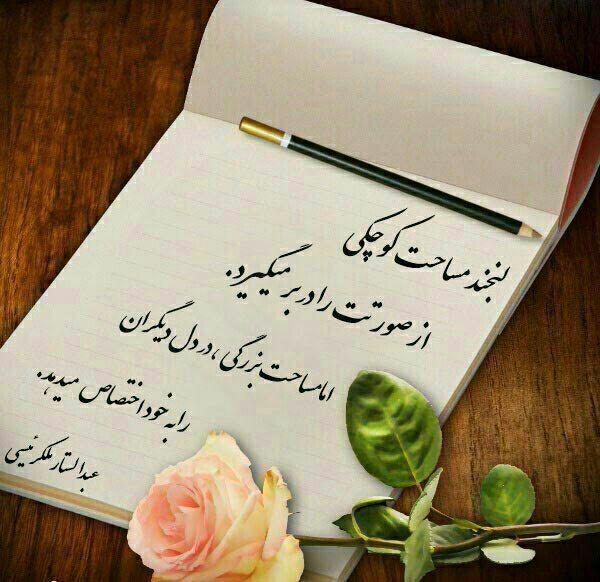 لبخند مساحت کوچکی
از صورتت را در بر میگیرد.
اما مساحت بزرگی، در دل دیگران
را به خود اختصاص میدهد.
عبدالستار ملکرئیسی